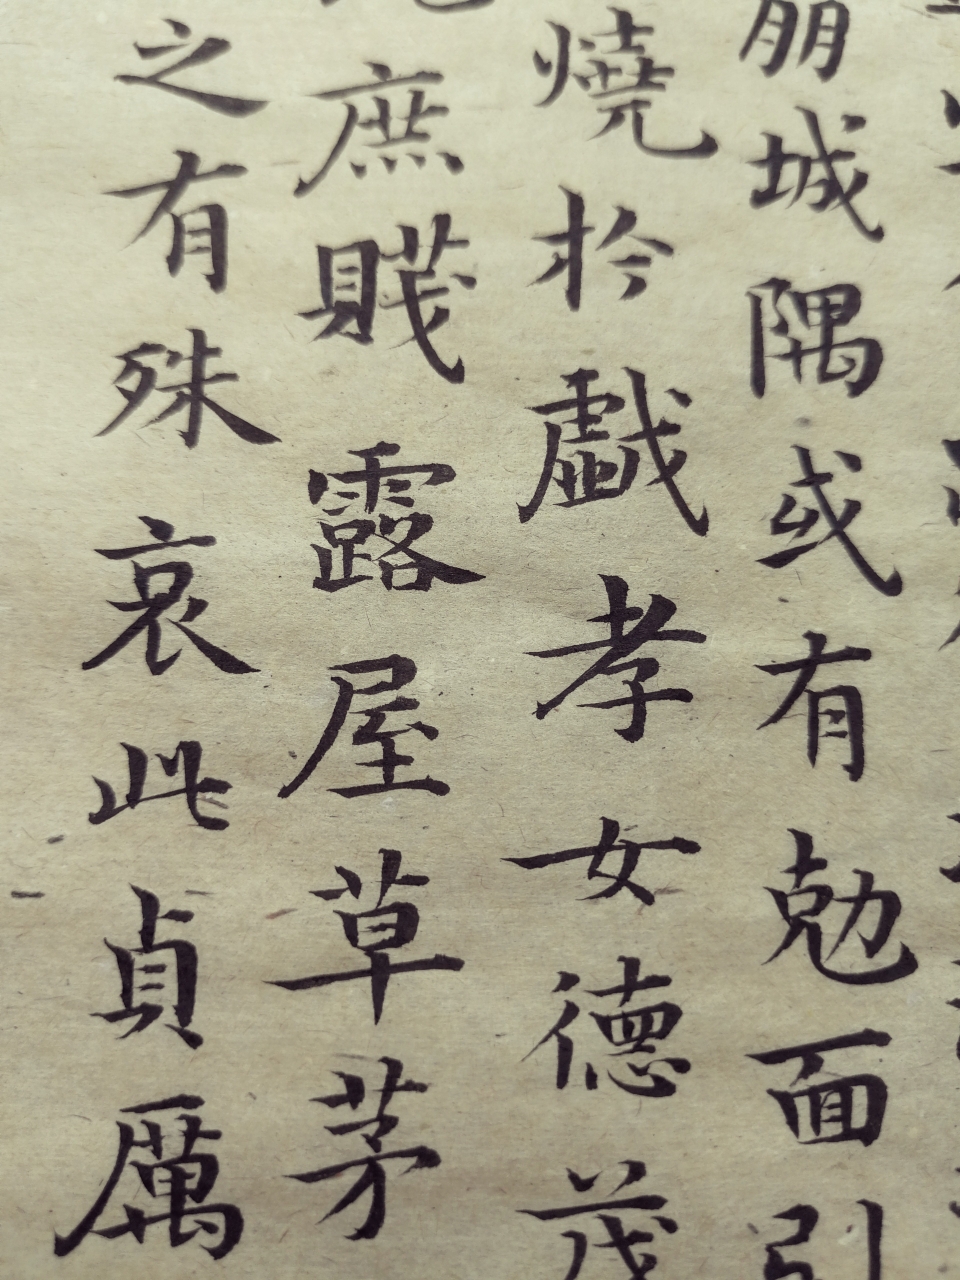 崩城隅或有勊面引
燒於戯孝女德茂
庶賤露屋草茅
之有殊哀此貞厲